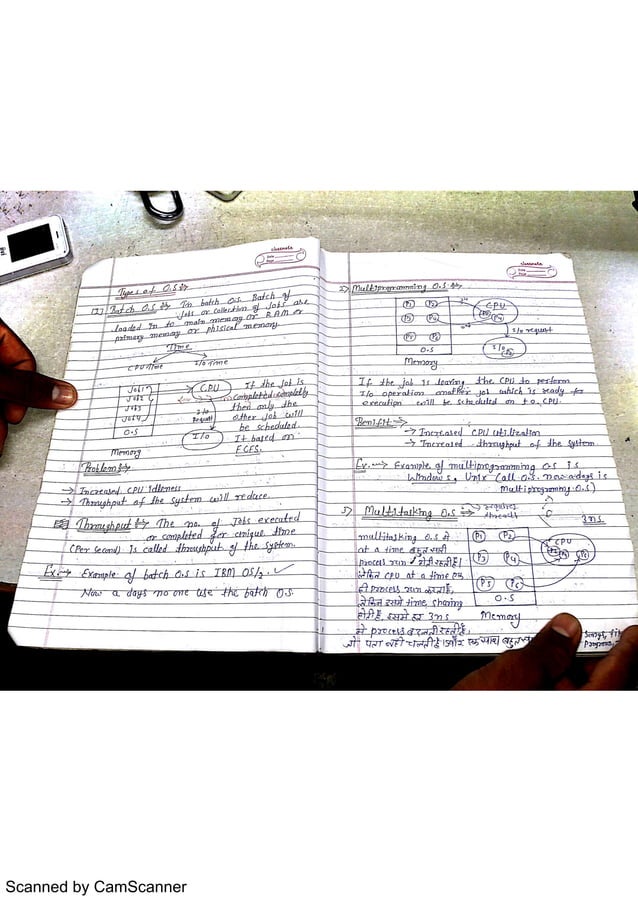 classmate
Date
Page
Types of O.S
Batch O.S In batch O.S. Batch of
Jobs or collection of Jobs are
loaded in to main memory or R.A.M or
primary memory or phisical memory.
Time
CPU Time
I/O Time
Job1
Job2
Job3
Job4
O.S
Memory
CPU
I/O
Request
I/O
If the job is
completed completly
then only the
other job will
be scheduled.
It based on
FCFS.
Problem
→ Increased CPU idleness
→ Throughput of the system will reduce.
Throughput The no. of Jobs executed
or completed for unique time
(Per second) is called throughput of the system.
Ex. Example of batch O.S is IBM OS/2.
Now a days no one use the batch O.S.
classmate
Date
Page
2) Multiprogramming O.S
P1 P2
P3 P4
O.S
Memory
CPU
I/O request
I/O
If the job is leaving the CPU to perform
I/O operation another job which is ready for
execution will be scheduled on to CPU.
Benifit
→ Increased CPU utilization
→ Increased throughput of the system
Ex. Example of multiprogramming O.S is
Windows, Unix (all O.S. now a days is
Multiprogrammg O.S)
3) Multitasking O.S
requires
threads
3ns
multitasking O.S मे
at a time बहुत सारी
process run होती रहती है।
लेकिन CPU at a time एक
ही process run करता है,
लेकिन इसमे time sharing
होती है, इसमे हर 3ns
मे process बदलती रहती है,
जो पता नही चलती है। और एक साथ बहुत
P1 P2
P3 P4
P5 P6
O.S
Memory
CPU
Scanned by CamScanner